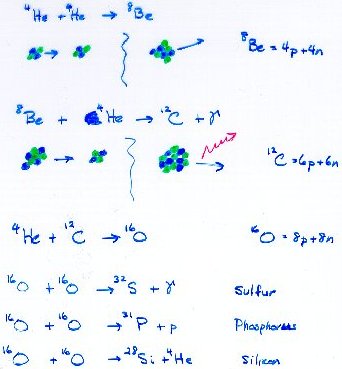 ⁴He + ⁴He → ⁸Be
⁸Be = 4p+4n
⁸Be + ⁴He → ¹²C + γ
¹²C = 6p+6n
⁴He + ¹²C → ¹⁶O
¹⁶O = 8p+8n
¹⁶O + ¹⁶O → ³²S + γ Sulfur
¹⁶O + ¹⁶O → ³¹P + p Phosphorus
¹⁶O + ¹⁶O → ²⁸Si + ⁴He Silicon